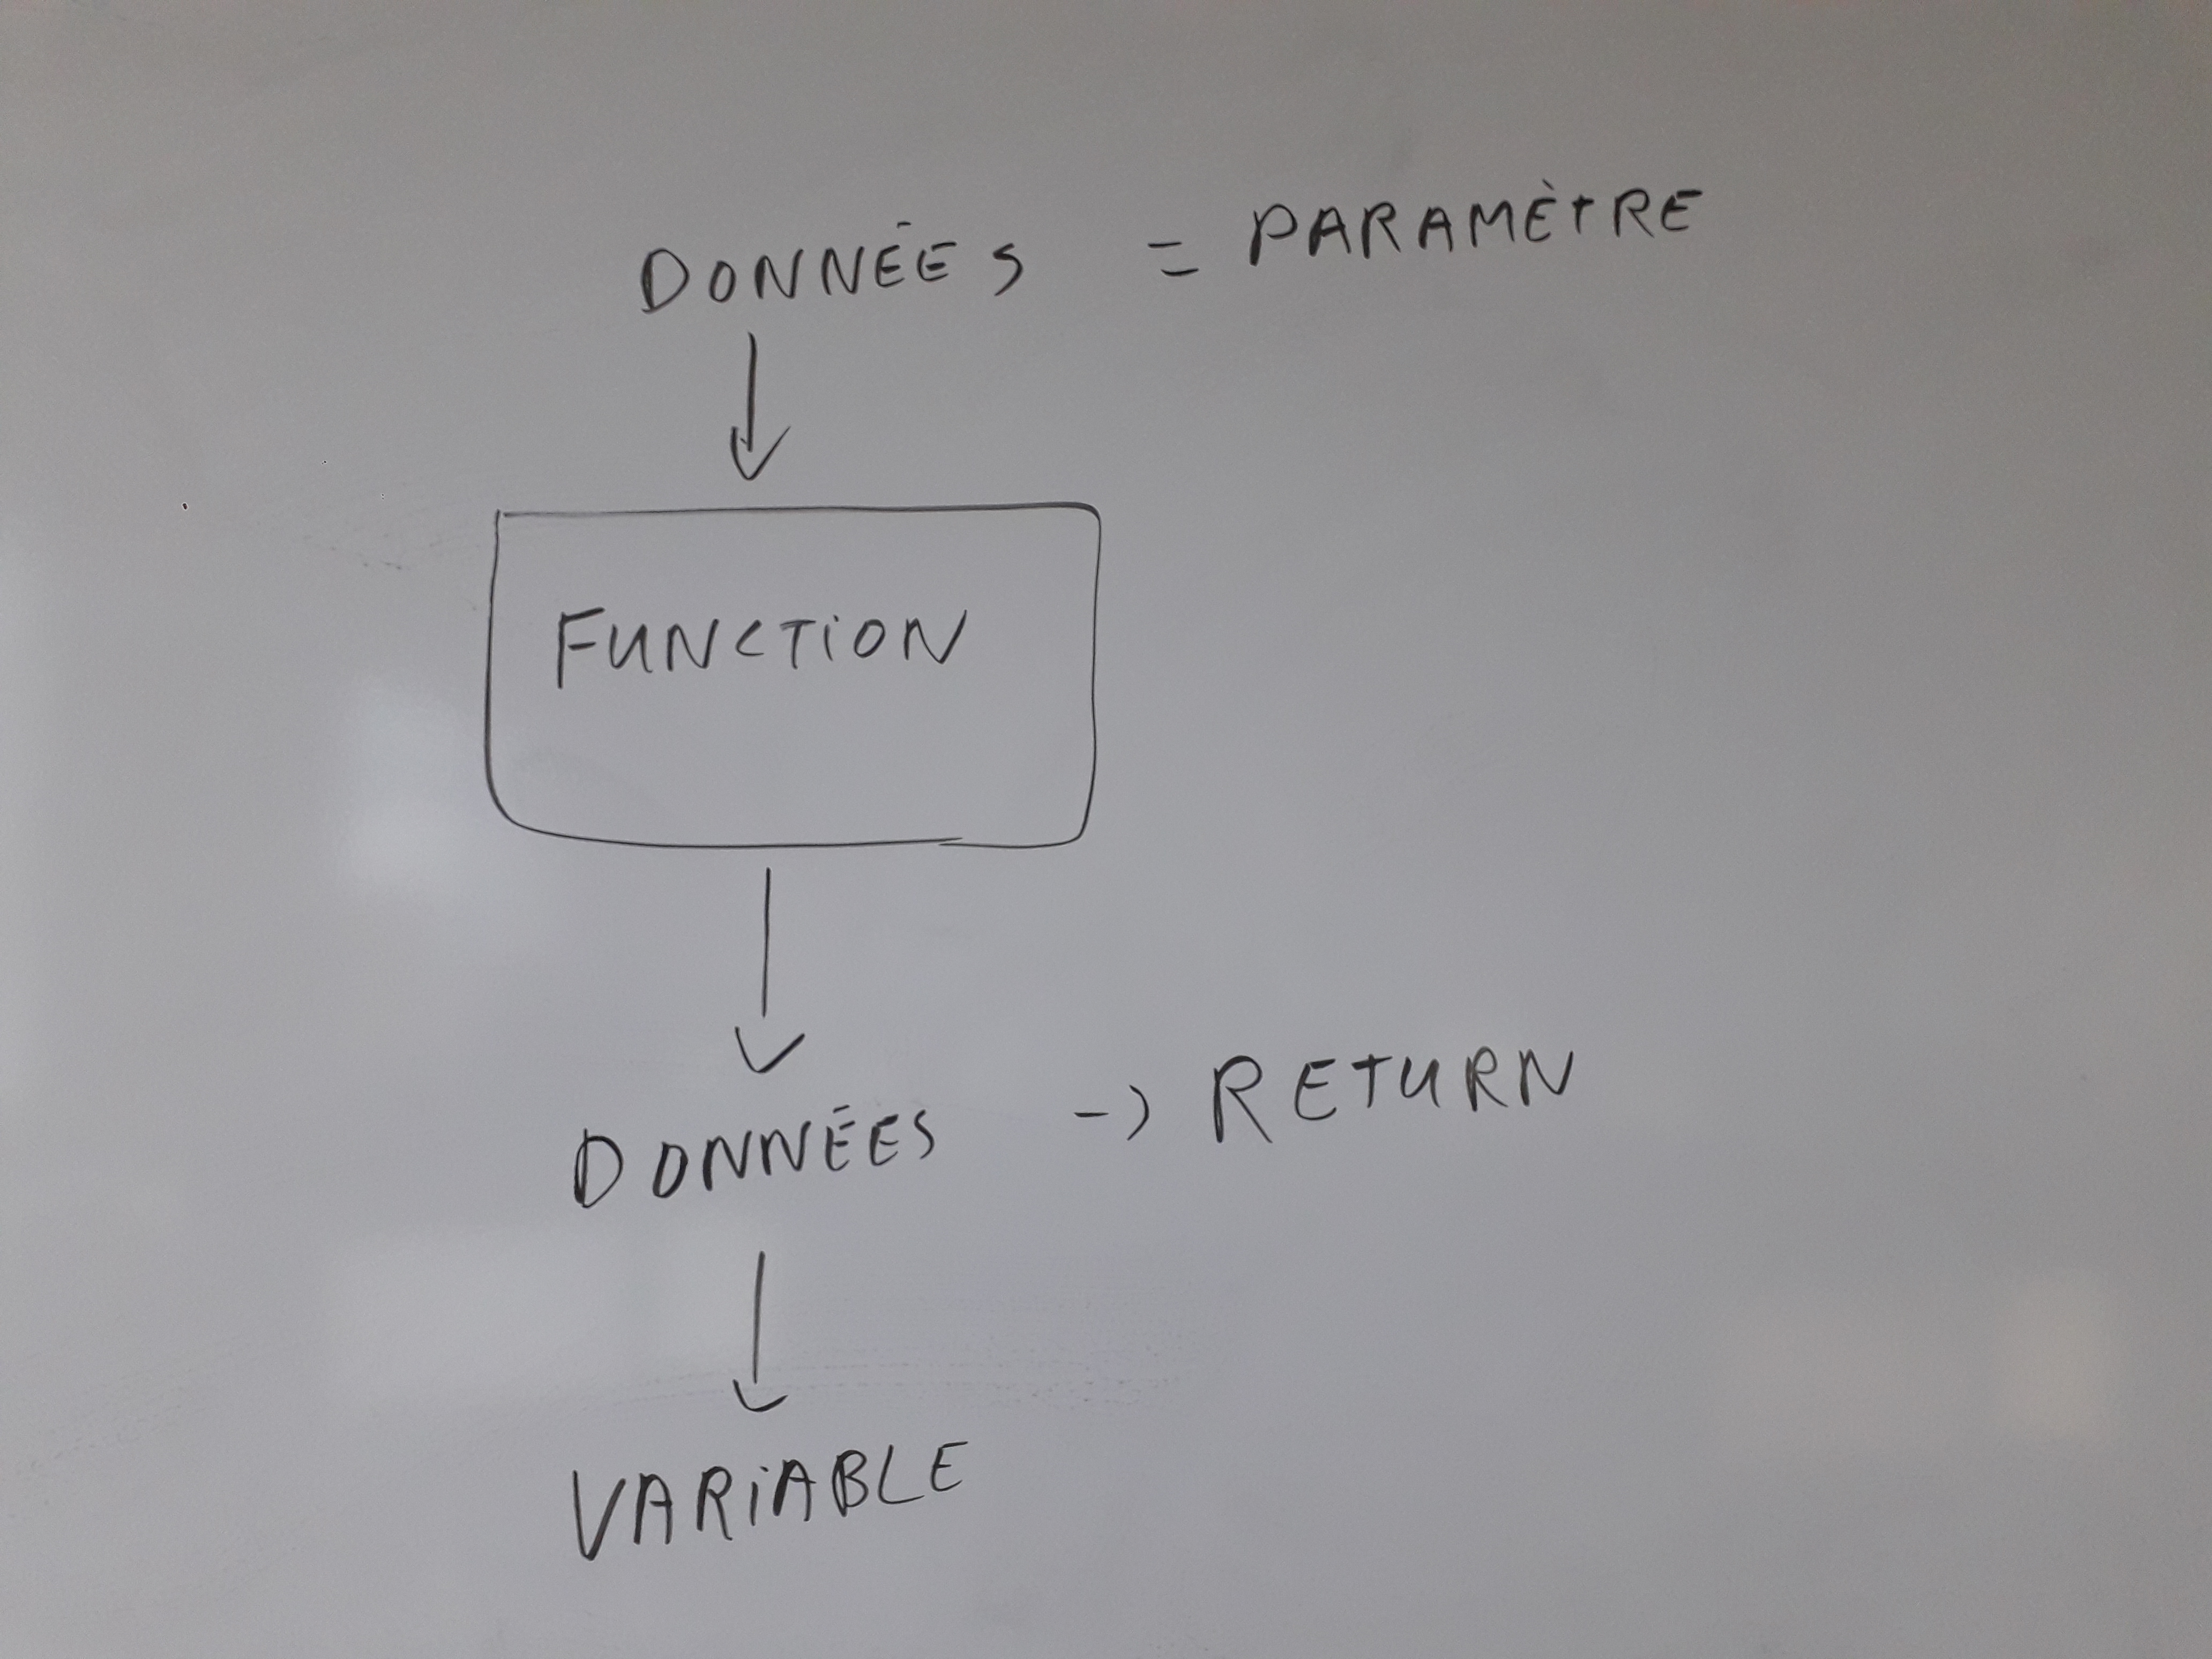 DONNÉES = PARAMÈTRE
FUNCTION
DONNÉES -> RETURN
VARIABLE